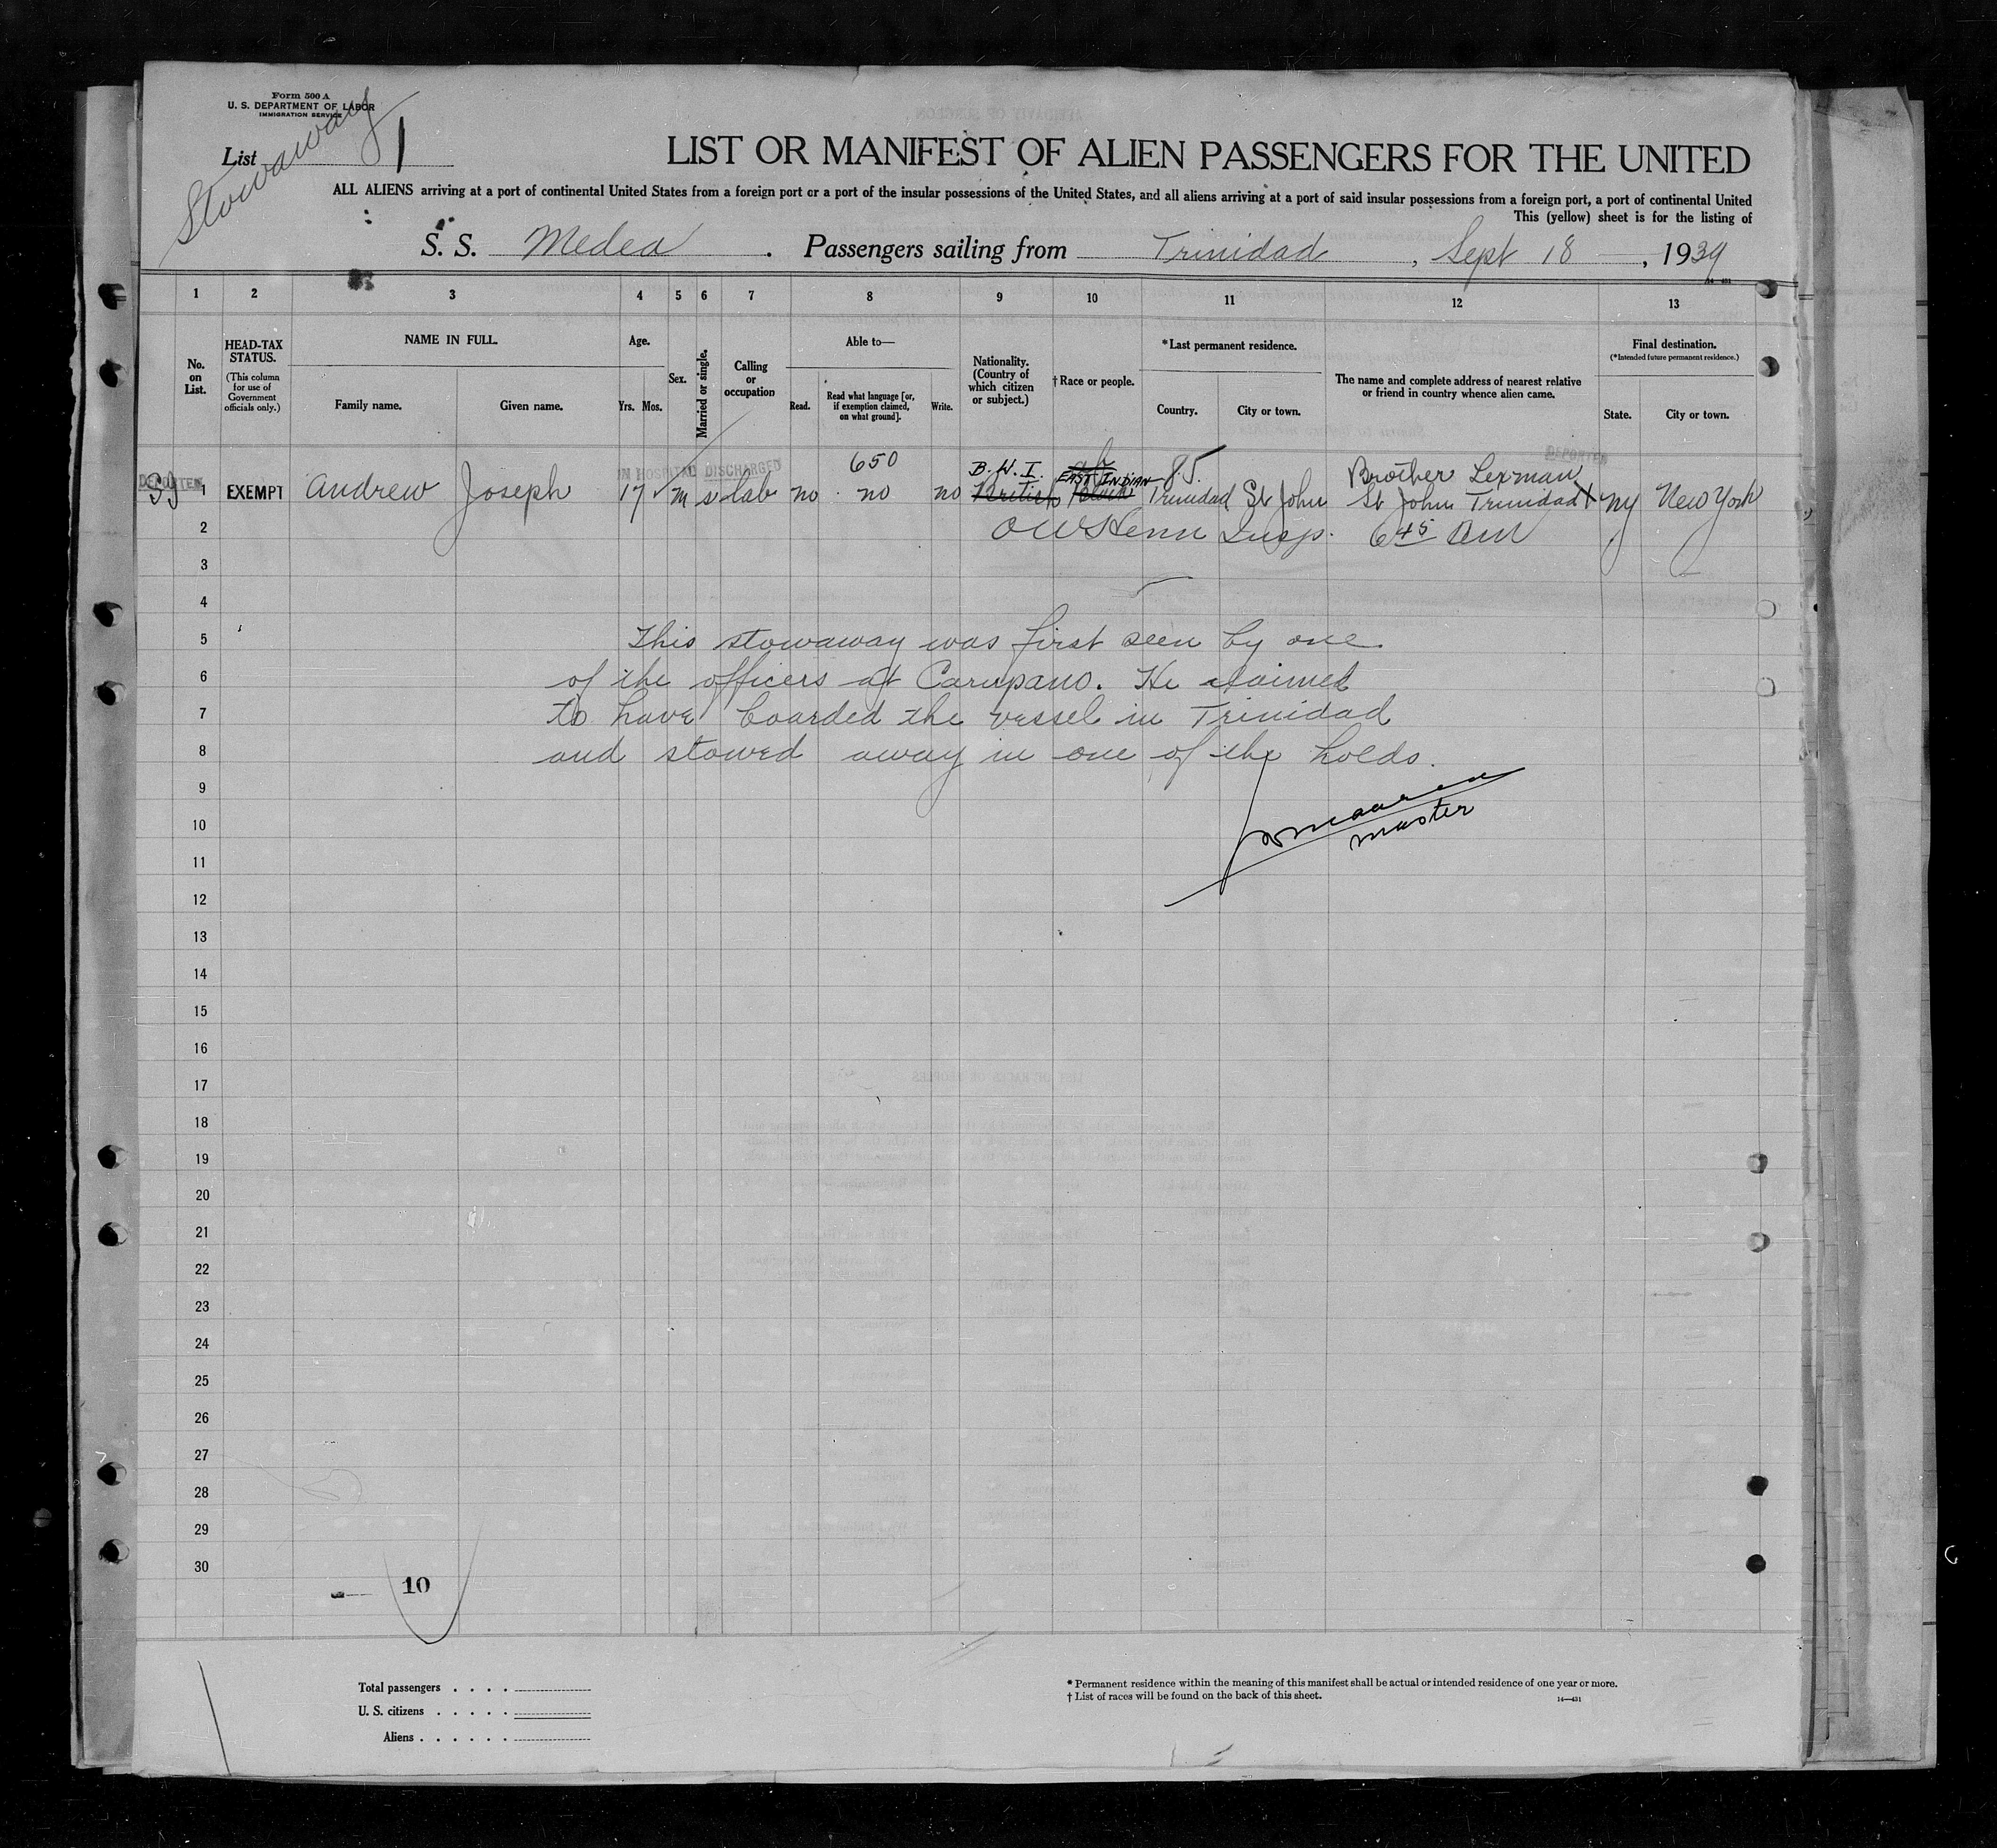 Form 500 A
U. S. DEPARTMENT OF LABOR
IMMIGRATION SERVICE
Stowaway
List 1
LIST OR MANIFEST OF ALIEN PASSENGERS FOR THE UNITED
ALL ALIENS arriving at a port of continental United States from a foreign port or a port of the insular possessions of the United States, and all aliens arriving at a port of said insular possessions from a foreign port, a port of continental United
This (yellow) sheet is for the listing of
S. S. Medea . Passengers sailing from Trinidad , Sept 18 , 1939
1 2 3 4 5 6 7 8 9 10 11 12 13
No. on List.
HEAD-TAX STATUS.
(This column for use of Government officials only.)
NAME IN FULL.
Family name. Given name.
Age.
Yrs. Mos.
Sex.
Married or single.
Calling or occupation
Able to—
Read. Read what language [or, if exemption claimed, on what ground]. Write.
Nationality. (Country of which citizen or subject.)
† Race or people.
*Last permanent residence.
Country. City or town.
The name and complete address of nearest relative or friend in country whence alien came.
Final destination.
(*Intended future permanent residence.)
State. City or town.
IN HOSPITAL DISCHARGED 650 B. W. I. EAST INDIAN 85 Brother Lexman DEPORTED
DEPORTED 1 EXEMPT Andrew Joseph 17 m s lab no no no British Trinidad St John St John Trinidad NY New York
2 Insp. 6 45 AM
3
4
5 This stowaway was first seen by one
6 of the officers at Carupano. He claimed
7 to have boarded the vessel in Trinidad
8 and stowed away in one of the holds.
9
10 master
11
12
13
14
15
16
17
18
19
20
21
22
23
24
25
26
27
28
29
30
10
Total passengers . . . .
U. S. citizens . . . . .
Aliens . . . . . .
* Permanent residence within the meaning of this manifest shall be actual or intended residence of one year or more.
† List of races will be found on the back of this sheet.
14—431